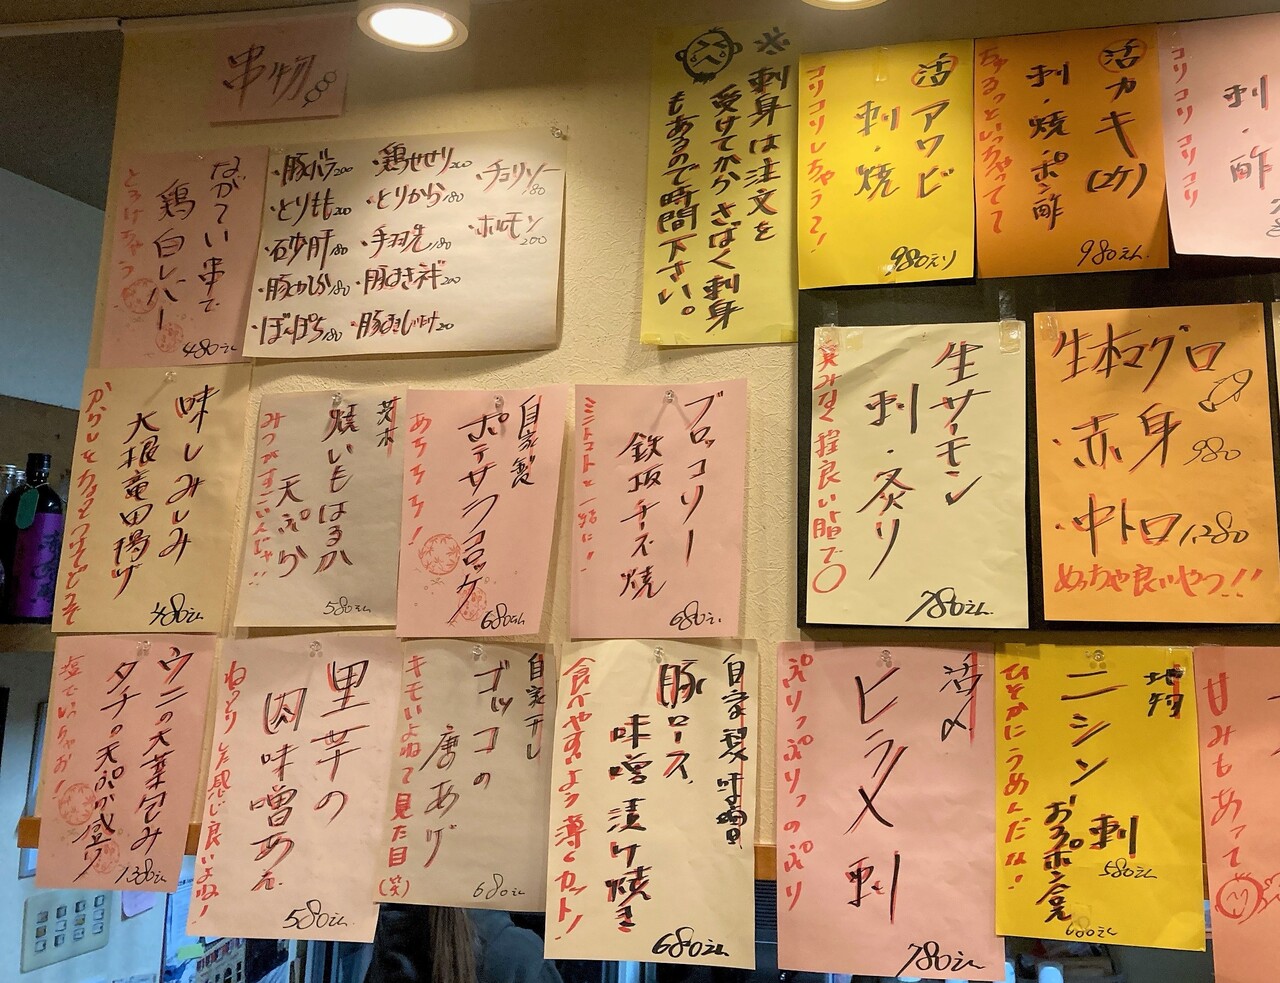 串物
ながーい串で
鶏白レバー
とろけちゃう
480えん
・豚バラ200
・とりもも200
・砂肝180
・豚かしら180
・ぼんぽち180
・鶏せせり200
・とりから180
・手羽先180
・豚まきネギ200
・チョリソー180
・ホルモン200
※刺身は注文を
受けてからさばく刺身
もあるので時間下さい。
活アワビ
刺・焼
コリコリしちゃうて!
980えん
活カキ(2ケ)
刺・焼・ポン酢
ちゅるっといっちゃってて
980えん
刺・酢
コリコリコリコリ
味しみしみ
大根竜田揚げ
480えん
焼いもはるか
天ぷら
みつがすごいんじゃ!!
580えん
自家製
ポテサラコロッケ
あちちち!
680えん
ブロッコリー
鉄板チーズ焼
ミニトマトと一緒に!
680えん
生サーモン
刺・炙り
臭みなく程良い脂で〇
780えん
生本マグロ
・赤身 980
・中トロ 1,280
めっちゃ良いやつ!!
ウニの大葉包み
タチの天ぷら盛り
塩でいっちゃお!
1,380えん
里芋の
肉味噌あえ
ねっとりした感じ良いよね!
580えん
自家干し
ゴッコの
唐あげ
キモいよねって見た目(笑)
680えん
自家製味噌
豚ロース
味噌漬け焼き
食べやすいよう薄くカット!
680えん
活〆
ヒラメ刺
ぷりっぷりっのぷり
780えん
地物
ニシン刺
580えん
おろポン合え
680えん
ひそかにうめんだな!
甘みもあって